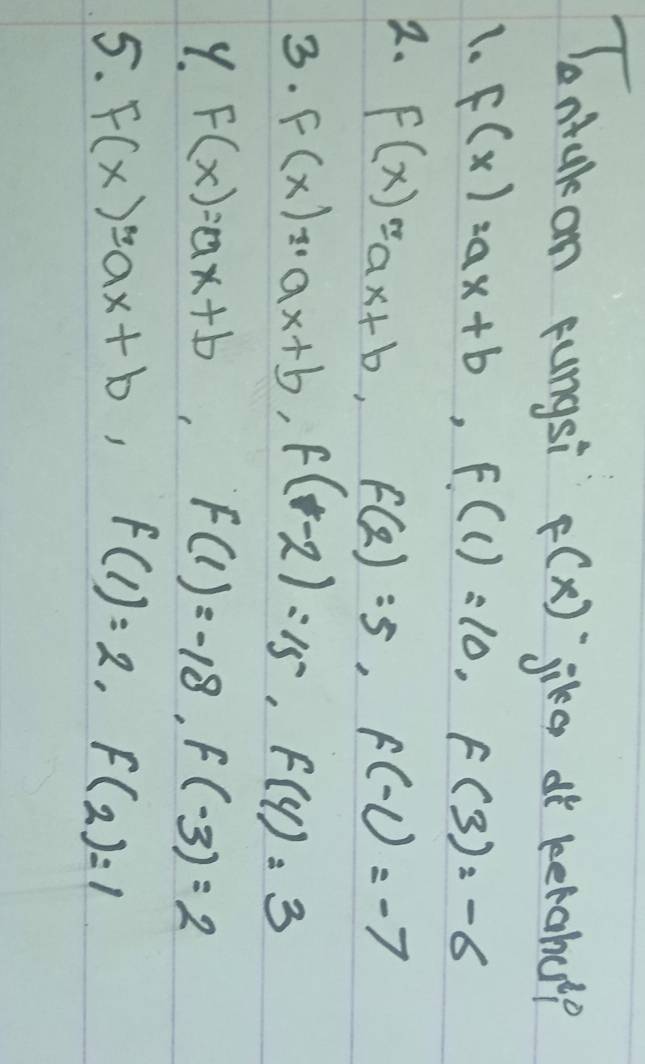 Tentukan fungsi F(x) jika di ketahui
1. F(x)=ax+b, F(1)=10, F(3)=-6
2. F(x)=ax+b, F(2)=5, F(-1)=-7
3. F(x)=ax+b, F(-2)=15, F(4)=3
4. F(x)=ax+b, F(1)=-18, F(-3)=2
5. F(x)=ax+b, F(1)=2, F(2)=1